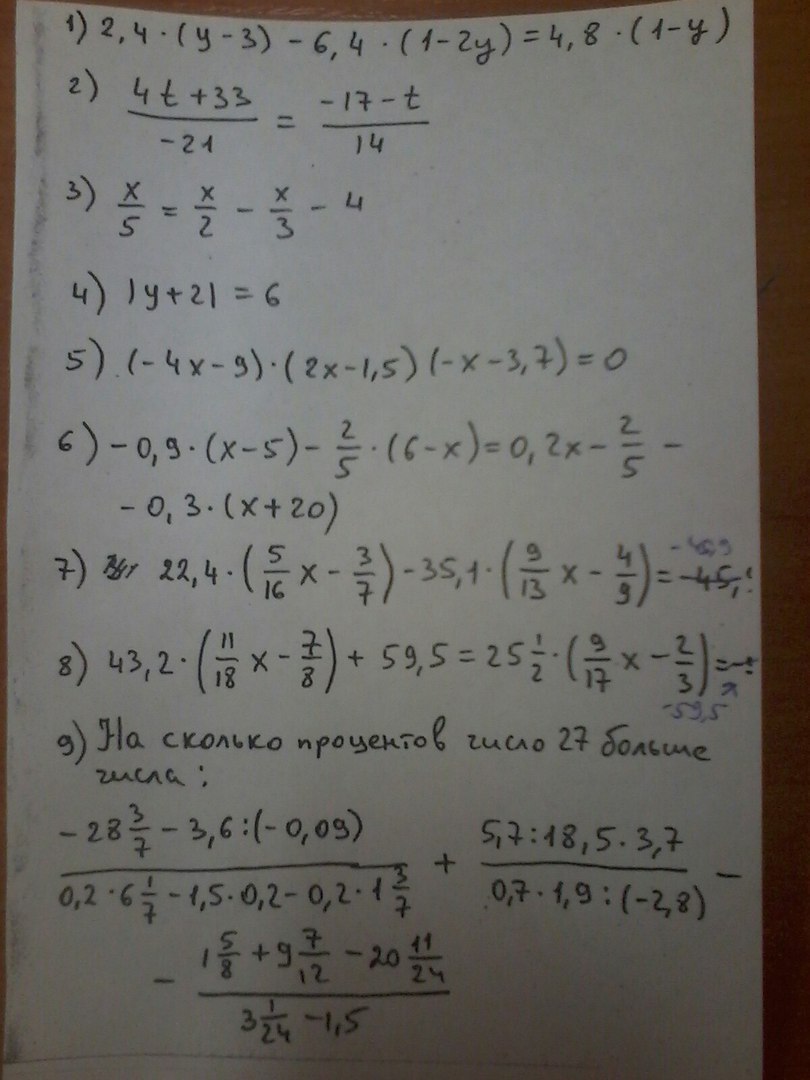 1) 2,4 · (y - 3) - 6,4 · (1 - 2y) = 4,8 · (1 - y)
2) (4t + 33)/(-21) = (-17 - t)/14
3) x/5 = x/2 - x/3 - 4
4) |y + 2| = 6
5) (-4x - 9) · (2x - 1,5) (-x - 3,7) = 0
6) - 0,9 · (x - 5) - 2/5 · (6 - x) = 0,2x - 2/5 -
- 0,3 · (x + 20)
7) 22,4 · (5/16 x - 3/7) - 35,1 · (9/13 x - 4/9) =
8) 43,2 · (11/18 x - 7/8) + 59,5 = 25 1/2 · (9/17 x - 2/3) =
-59,5
9) На сколько процентов число 27 больше
числа:
(-28 3/7 - 3,6 : (-0,09))/(0,2 · 6 1/7 - 1,5 · 0,2 - 0,2 · 1 3/7) + (5,7 : 18,5 · 3,7)/(0,7 · 1,9 : (-2,8)) -
- (1 5/8 + 9 7/12 - 20 11/24)/(3 1/24 - 1,5)